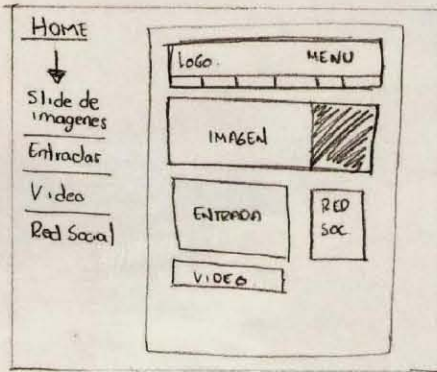 HOME
Slide de
imagenes
Entradas
Video
Red Social
LOGO. MENU
IMAGEN
ENTRADA
RED
SOC
VIDEO